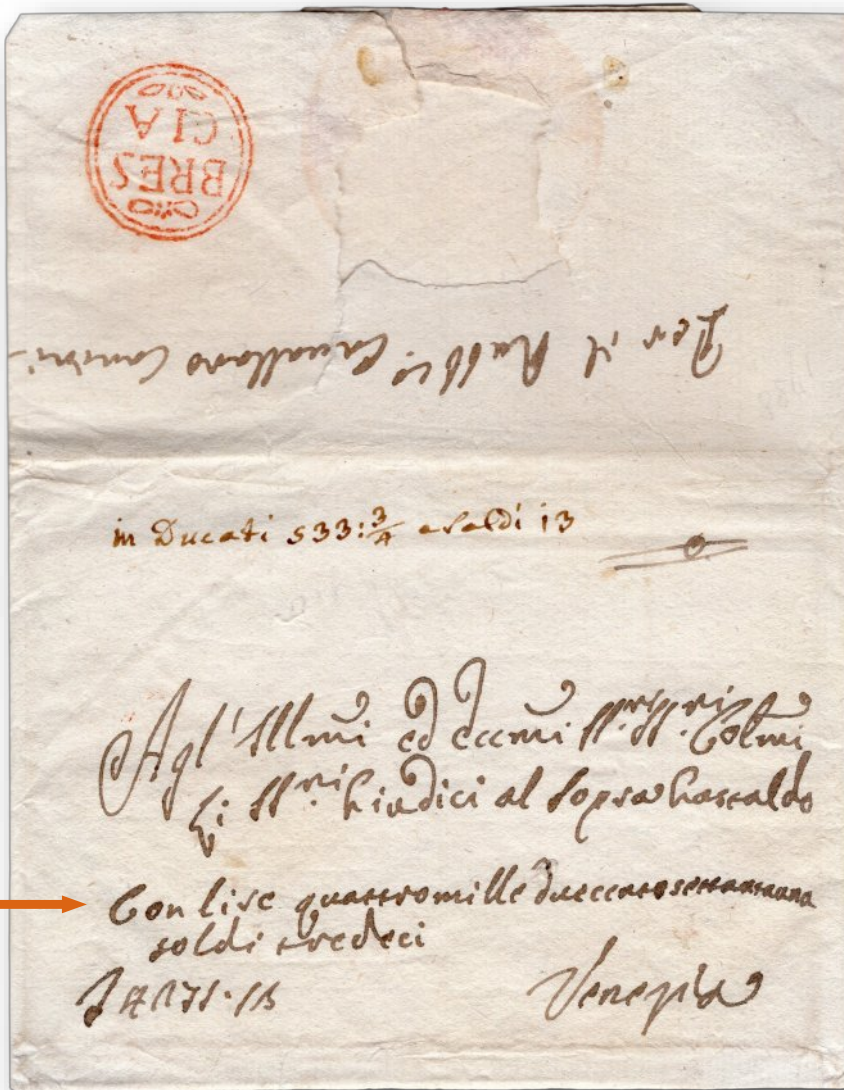 BRES
CIA
Per il
in Ducati 533:3/4 a soldi 13
Agl' Illmi ed Eccmi SS.ri SS.ri Colmi
Li SS.ri Giudici al Sopra Gastaldo
Con lire quattromille duecentosettantauna
soldi tredeci
4271.13
Venezia